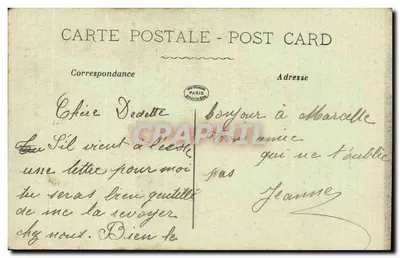 CARTE POSTALE - POST CARD
Correspondance
Adresse
PARIS
Chère Dedette
S'il vient à l'école
une lettre pour moi
tu seras bien gentille
de me la renvoyer
chez nous. Bien le
bonjour à Marcelle
Ton amie
qui ne t'oublie
pas
Jeanne